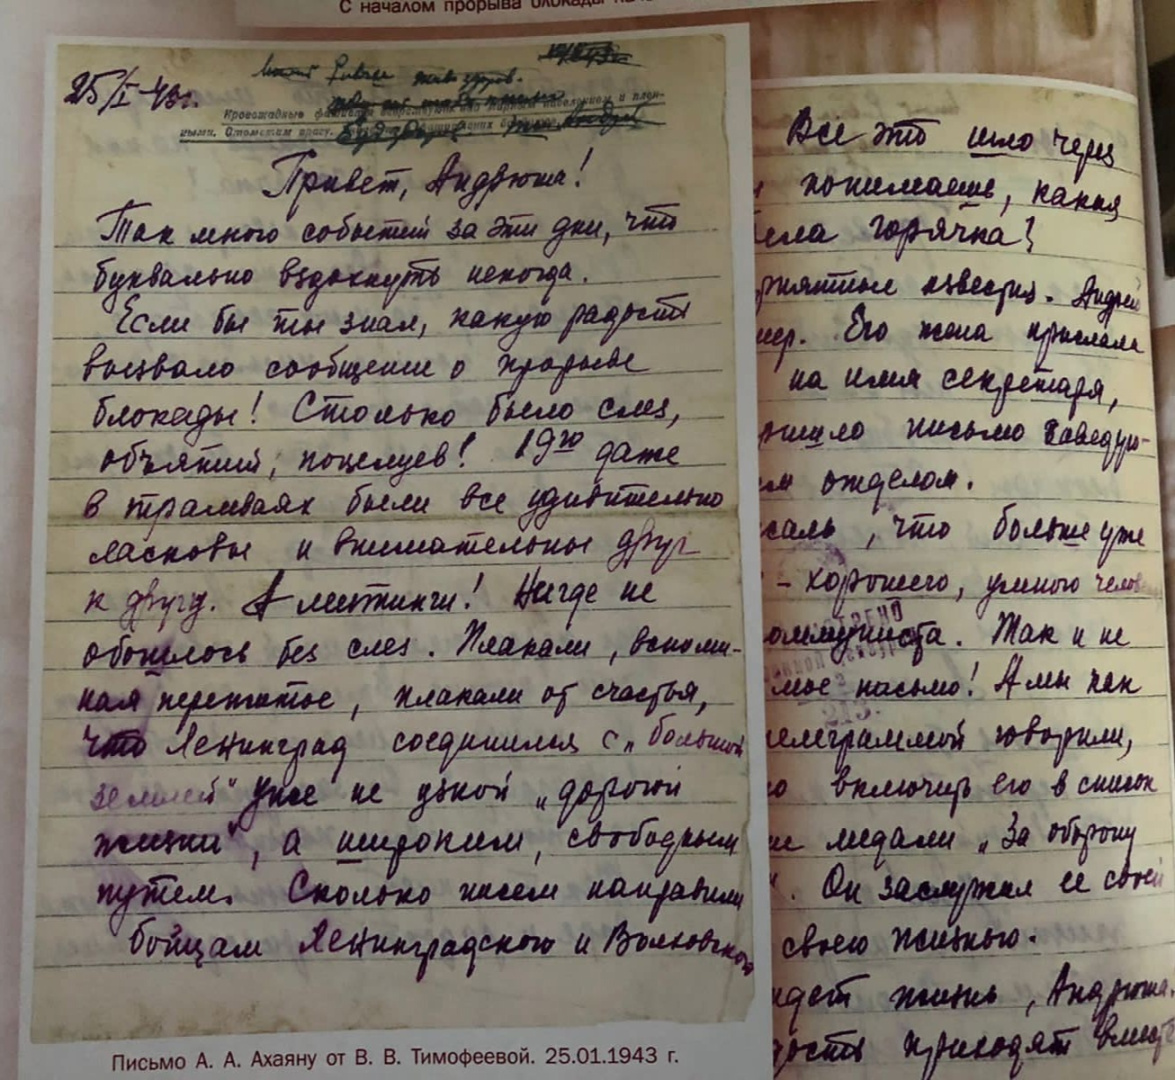 С началом прорыва блокады
25/I-43г.
жив здоров.
Кровожадные
ными. Отомстим врагу.
Привет, Андрюша!
Так много событий за эти дни, что
буквально вздохнуть некогда.
Если бы ты знал, какую радость
вызвало сообщение о прорыве
блокады! Столько было слез,
объятий, поцелуев! 19го даже
в трамваях были все удивительно
ласковы и внимательны друг
к другу. А митинги! Нигде не
обошлось без слез. Плакали, вспоми-
ная пережитое, плакали от счастья,
что Ленинград соединился с „большой
землей" уже не узкой „дорогой
жизни", а широким, свободным
путем. Сколько писем направили
бойцам Ленинградского и Волховского
Письмо А. А. Ахаяну от В. В. Тимофеевой. 25.01.1943 г.
Все это шло через
понимаешь, какая
горячка?
известия. Андрей
Его жена прислала
на имя секретаря,
письмо заведую-
отделом.
что больше уже
- хорошего, умного
Так и не
письмо! А мы как
говорили,
включить его в список
медали „За оборону
Он заслужил ее своей
своею жизнью.
жизнь, Андрюша.
приходят вместе